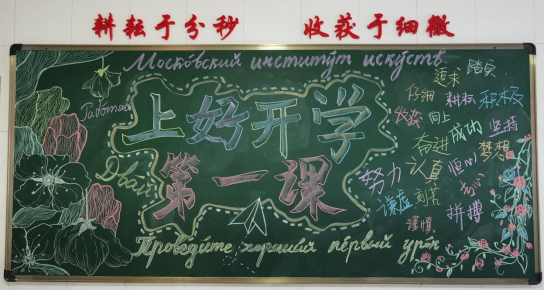 耕耘于分秒 收获于细微
Московский институт искуств.
Работай
上好开学
第一课
Проведите хороший первый урок
追求 踏实
仔细 耕耘 积极
收获 向上
奋进 成功 坚持
认真 恒心 梦想
努力
谦虚 刻苦
拼搏
谨慎